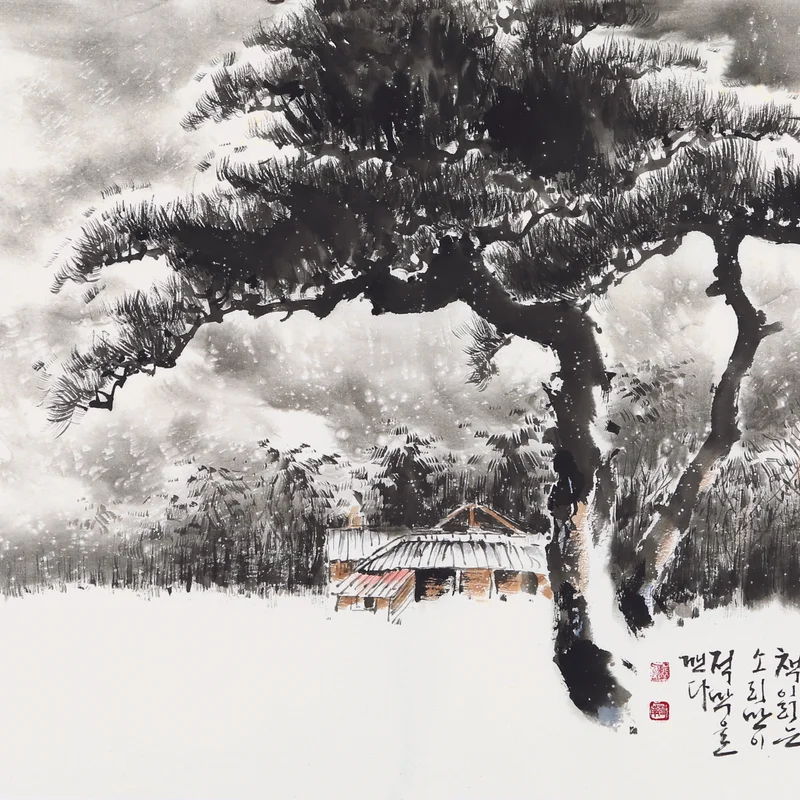 책 읽는
소리만이
적막을
깬다